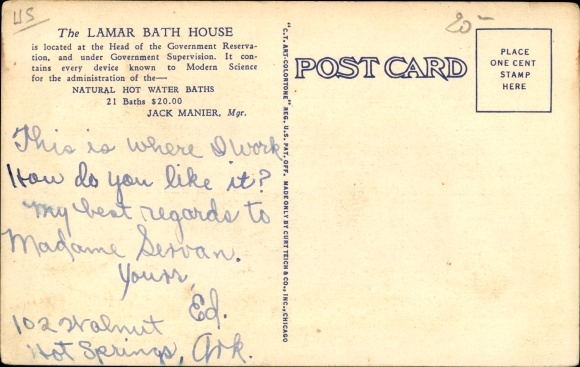 US
20-
The LAMAR BATH HOUSE
is located at the Head of the Government Reserva-
tion, and under Government Supervision. It con-
tains every device known to Modern Science
for the administration of the—
NATURAL HOT WATER BATHS
21 Baths $20.00
JACK MANIER, Mgr.
This is where I work
How do you like it?
My best regards to
Madame Servan.
Yours,
Ed.
102 Walnut
Hot Springs, Ark.
"C.T. ART-COLORTONE" REG. U.S. PAT. OFF. MADE ONLY BY CURT TEICH & CO., INC., CHICAGO
POST CARD
PLACE
ONE CENT
STAMP
HERE